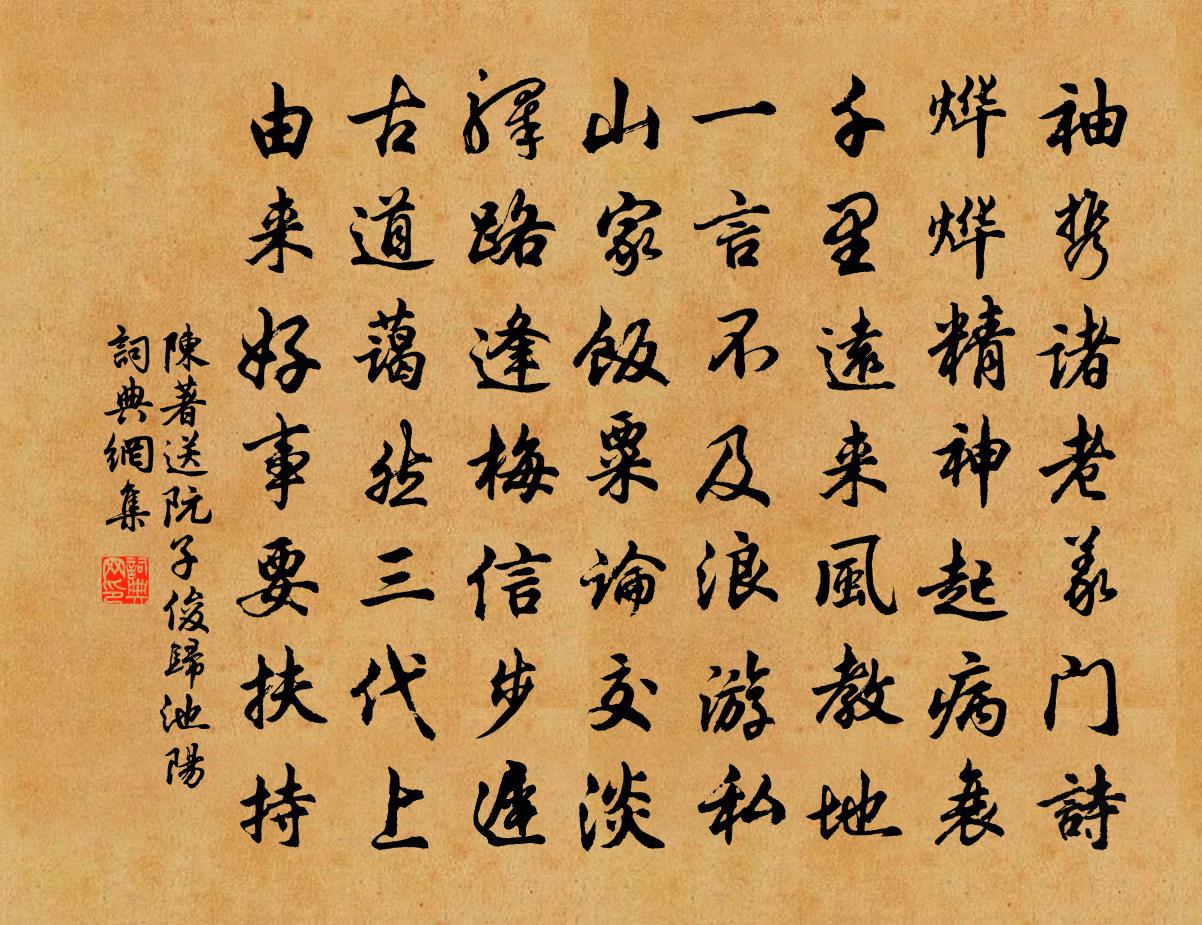 袖携諸老義門詩
烨烨精神起病衰
千里遠来風教地
一言不及浪游私
山家飯粟論交淡
驛路逢梅信步遲
古道藹然三代上
由来好事要扶持
陳著送阮子俊歸池陽
詞典網集
詞典网印